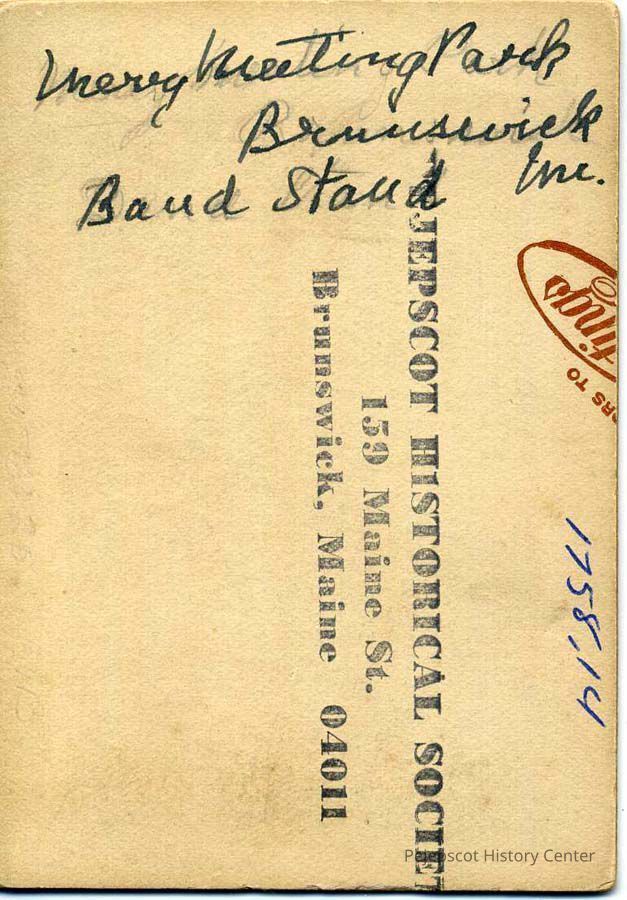 Merry Meeting Park
Brunswick
Me.
Band Stand
JEPSCOT HISTORICAL SOCIET
159 Maine St.
Brunswick, Maine 04011
RS TO
1758.14
Pejepscot History Center